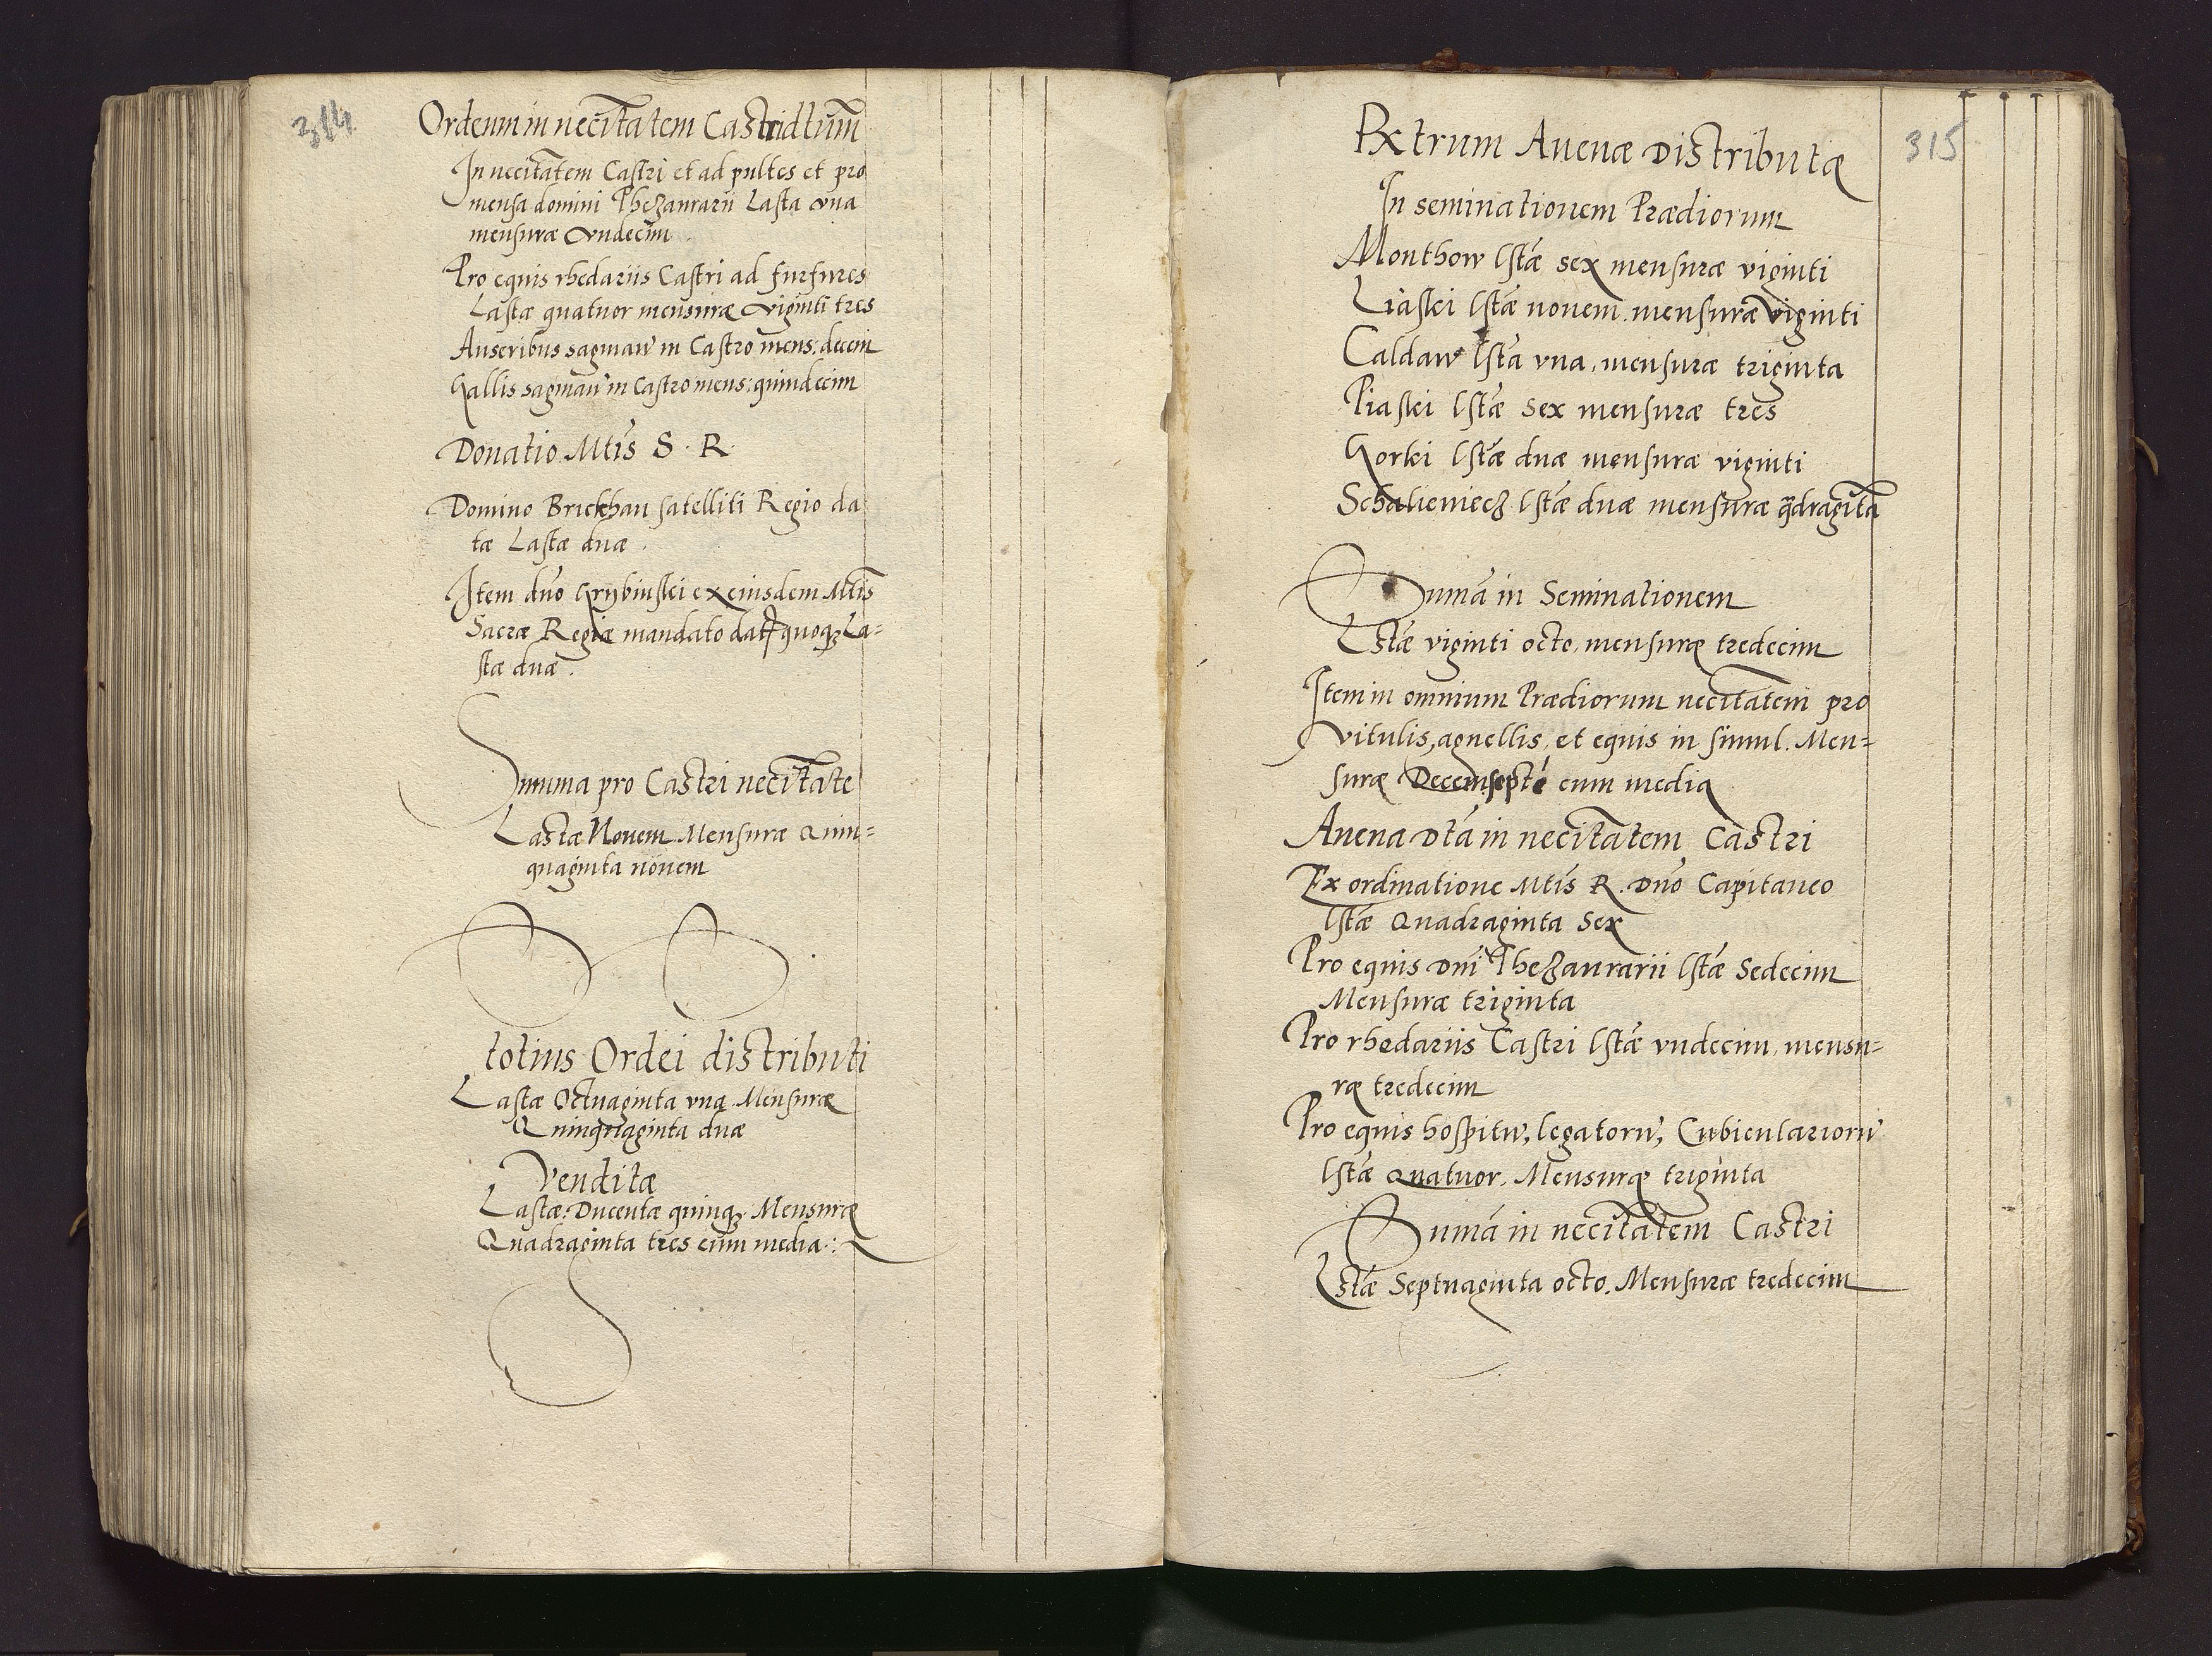 314
Ordeum in necitatem Castri dtum
In necitatem Castri et ad pultes et pro
mensa domini Thezaurarii Lasta vna
mensuræ vndecim.
Pro equis rhedariis Castri ad furfures
Lastæ quatuor mensuræ viginti tres
Anseribus saginan in Castro mens: decem
Gallis saginan in Castro mens: quindecim
Donatio Mtis S. R.
Domino Brickhan satelliti Regio da
tæ Lastæ duæ.
Item dno Grÿbinski ex eiusdem Mtis
Sacræ Regiæ mandato datæ quoqz La=
stæ duæ.
Summa pro Castri necitate
Lastæ Novem. Mensuræ Quin=
quaginta novem
totius Ordei distributi
Lastæ Octuaginta vna. Mensuræ
Quinquaginta duæ
Venditæ
Lastæ: Ducentæ quinqz. Mensuræ
Quadraginta tres cum media:
315
Extrum Auenæ Distributæ
In seminationem Prædiorum
Monthow lstæ sex mensuræ viginti
Liaski lstæ novem. mensuræ viginti
Caldaw lsta vna, mensuræ triginta
Piaski lstæ sex mensuræ tres
Gorki lstæ duæ mensuræ viginti
Schalieniecz lstæ duæ mensuræ qdragita
Suma in Seminationem
Lstæ viginti octo, mensuræ tredecim
Item in omnium Prædiorum necitatem pro
vitulis, agnellis, et equis in simul. Men=
suræ Decemsepte cum media
Auena Dta in necitatem Castri
Ex ordinatione Mtis R. Dno Capitaneo
lstæ Quadraginta Sex
Pro equis Dni Thezaurarii lstæ Sedecim
Mensuræ triginta
Pro rhedariis Castri lstæ vndecim, mensu=
ræ tredecim
Pro equis hospitu, legatoru, Cubicularioru
lstæ Quatuor. Mensuræ triginta
Suma in necitatem Castri
Lstæ Septuaginta octo. Mensuræ tredecim